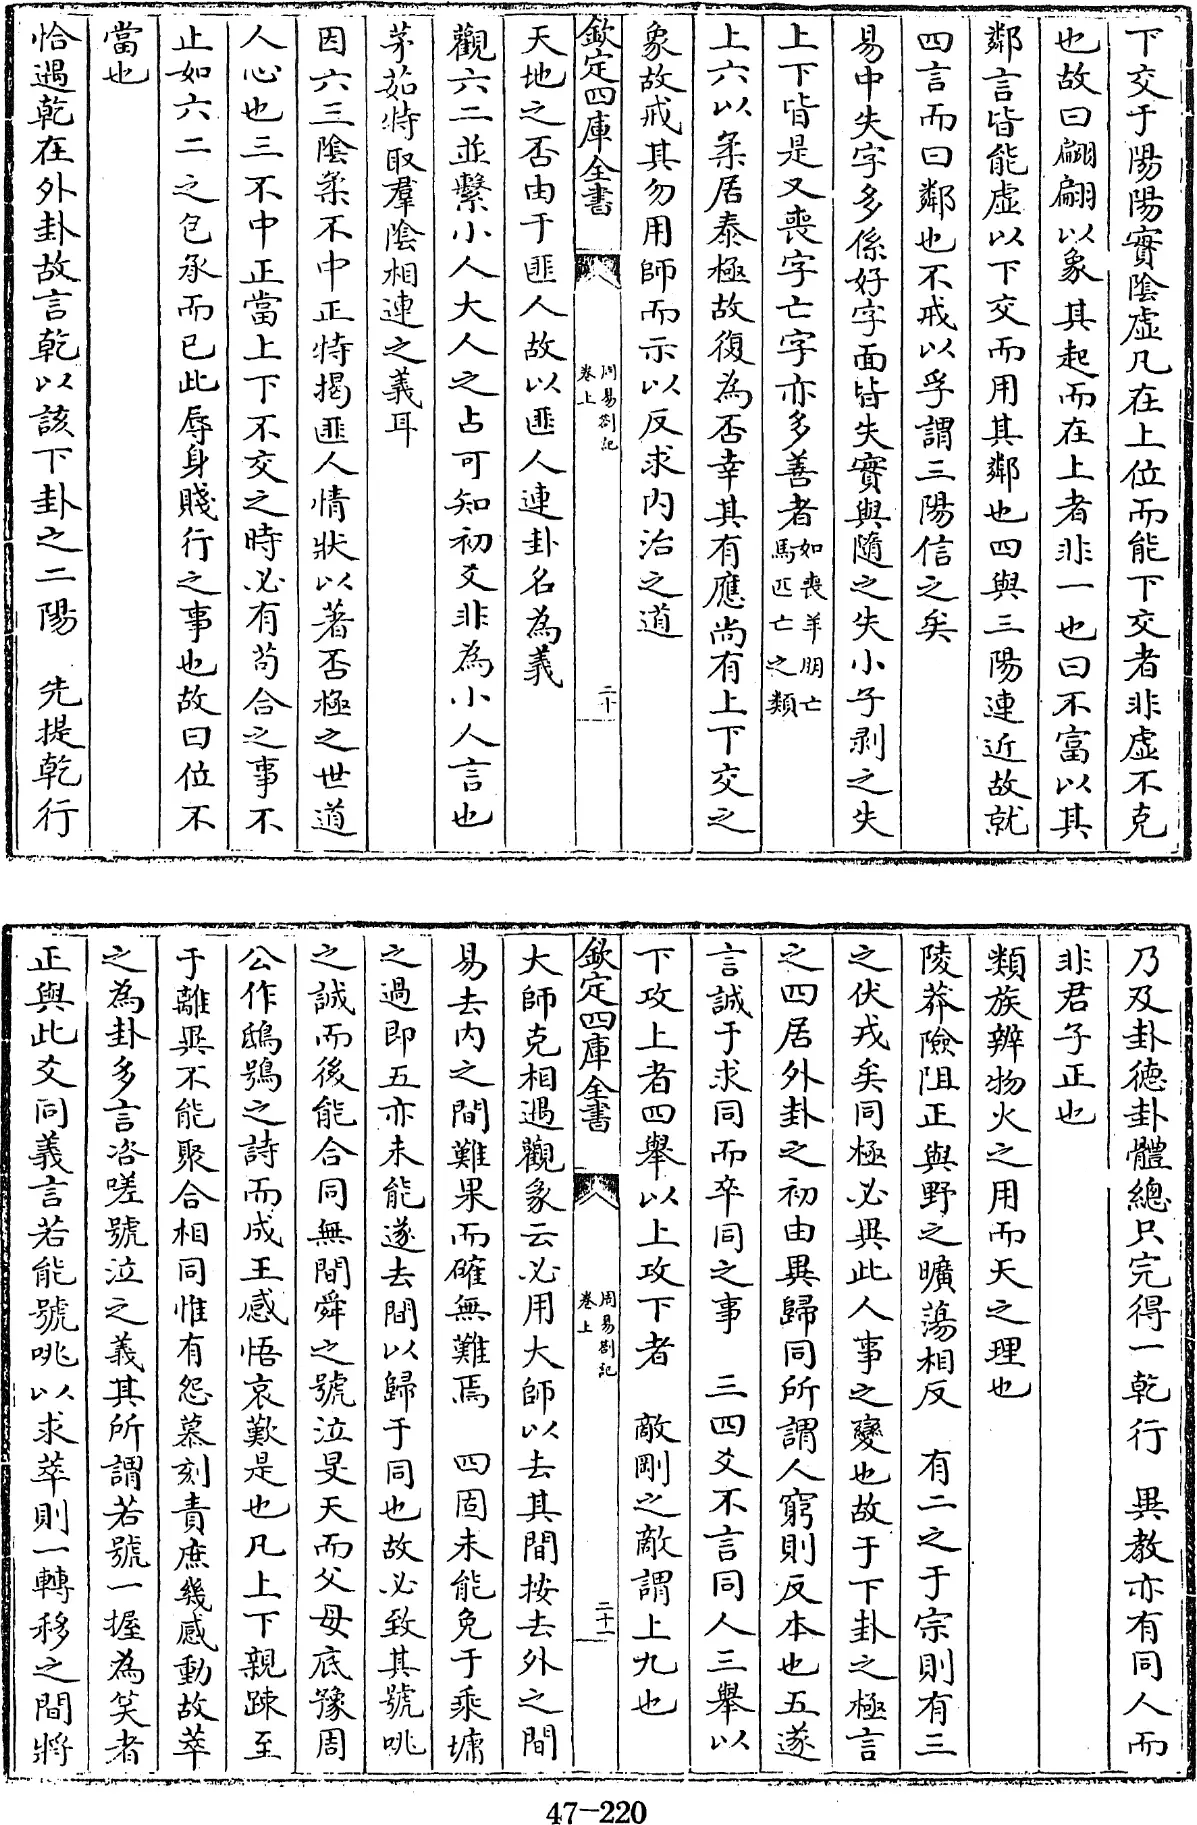 下交于陽陽實陰虛凡在上位而能下交者非虛不克
也故曰翩翩以象其起而在上者非一也曰不富以其
鄰言皆能虛以下交而用其鄰也四與三陽連近故就
四言而曰鄰也不戒以孚謂三陽信之矣
易中失字多係好字面皆失實與隨之失小子剥之失
上下皆是又喪字亡字亦多善者如喪羊朋亡馬匹亡之類
上六以柔居泰極故復為否幸其有應尚有上下交之
象故戒其勿用師而示以反求内治之道
欽定四庫全書
周易劄記
卷上
二十
天地之否由于匪人故以匪人連卦名為義
觀六二並繫小人大人之占可知初爻非為小人言也
茅茹特取羣陰相連之義耳
因六三陰柔不中正特揭匪人情狀以著否極之世道
人心也三不中正當上下不交之時必有茍合之事不
止如六二之包承而已此辱身賤行之事也故曰位不
當也
恰遇乾在外卦故言乾以該下卦之二陽　先提乾行
乃及卦德卦體總只完得一乾行　異教亦有同人而
非君子正也
類族辨物火之用而天之理也
陵莽險阻正與野之曠蕩相反　有二之于宗則有三
之伏戎矣同極必異此人事之變也故于下卦之極言
之四居外卦之初由異歸同所謂人窮則反本也五遂
言誠于求同而卒同之事　三四爻不言同人三舉以
下攻上者四舉以上攻下者　敵剛之敵謂上九也
欽定四庫全書
周易劄記
卷上
二十一
大師克相遇觀彖云必用大師以去其間按去外之間
易去内之間難果而確無難焉　四固未能免于乘墉
之過即五亦未能遂去間以歸于同也故必致其號咷
之誠而後能合同無間舜之號泣旻天而父母底豫周
公作鴟鴞之詩而成王感悟哀歎是也凡上下親踈至
于離異不能聚合相同惟有怨慕刻責庶幾感動故萃
之為卦多言咨嗟號泣之義其所謂若號一握為笑者
正與此爻同義言若能號咷以求萃則一轉移之間將
47-220